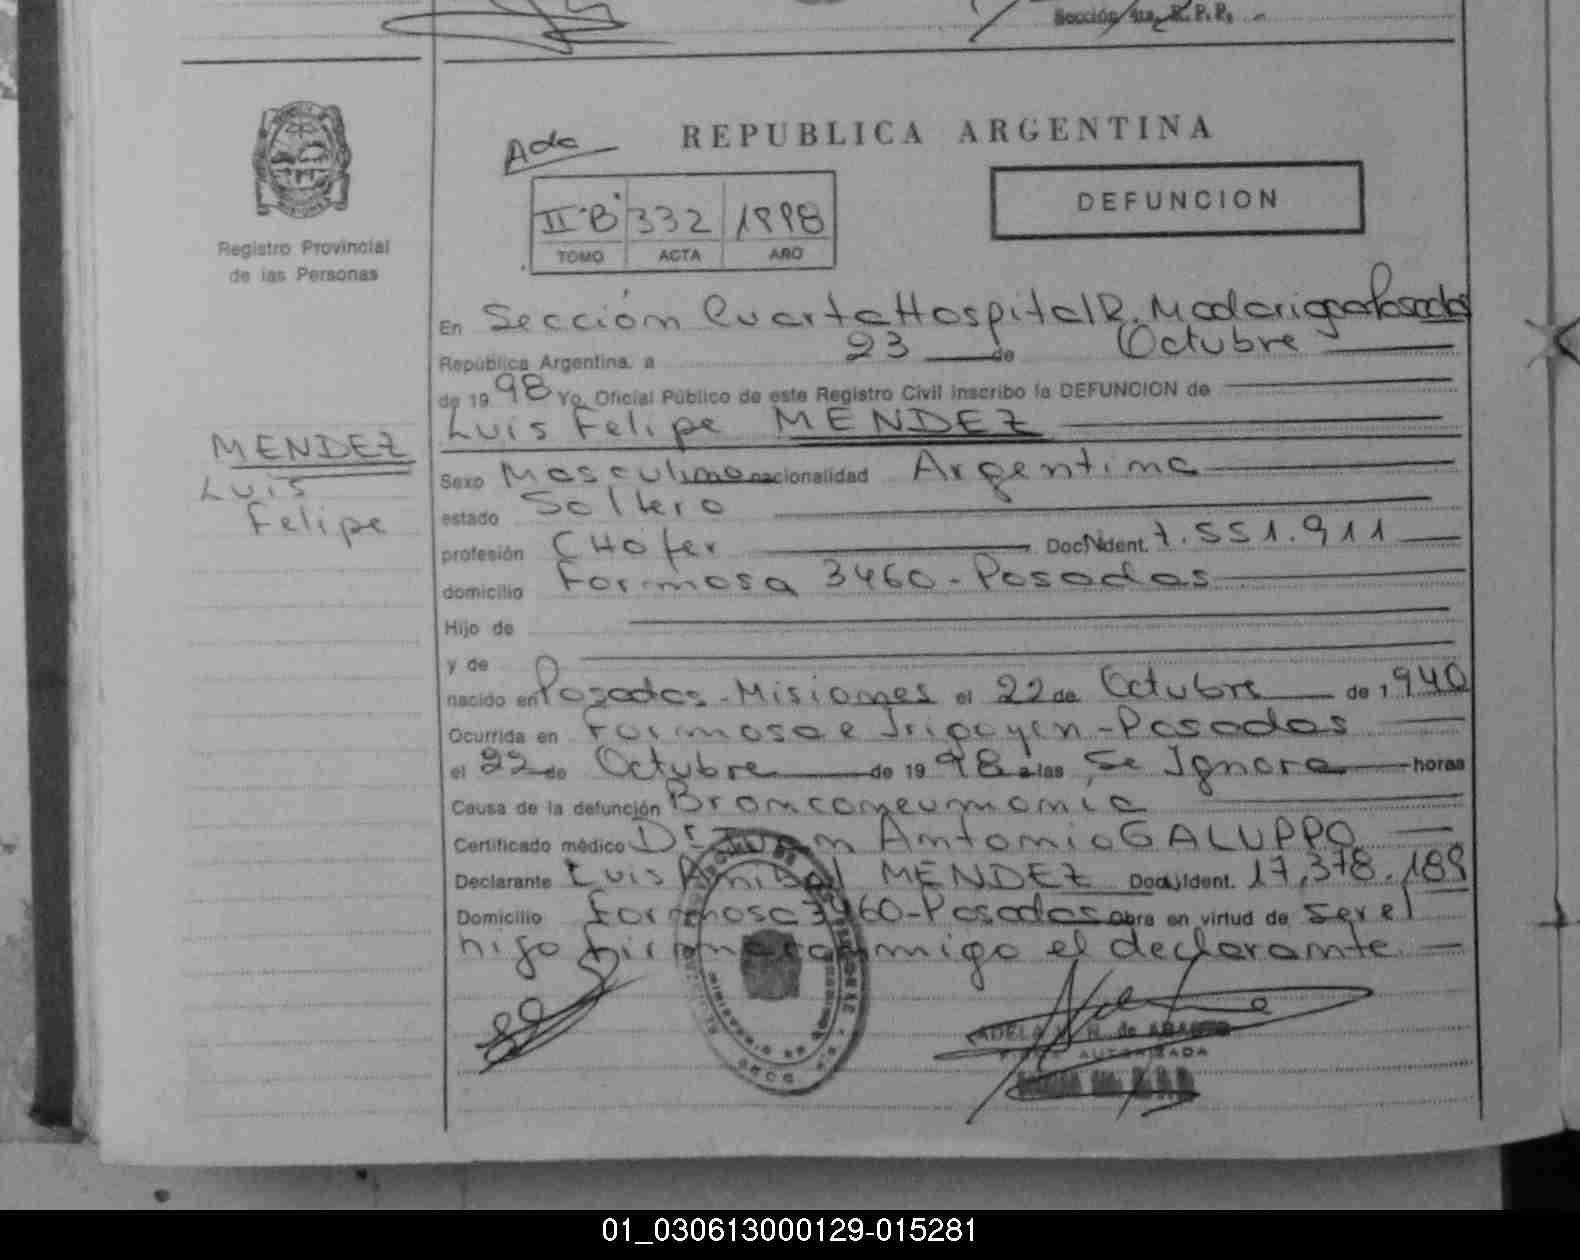 Sección 4ta, R.P.P.
REPUBLICA ARGENTINA
Ada
DEFUNCION
II "B" 332 1998
TOMO ACTA AÑO
Registro Provincial
de las Personas
En Sección Cuarta Hospital R. Madariaga Posadas
República Argentina, a 23 de Octubre
de 19 98 Yo, Oficial Público de este Registro Civil inscribo la DEFUNCION de
Luis Felipe MENDEZ
MENDEZ
Luis
Felipe
Sexo Masculino nacionalidad Argentina
estado Soltero
profesión CHOfer Doc. Ident. 7.551.911
domicilio Formosa 3460-Posadas
Hijo de
y de
nacido en Posadas-Misiones el 22 de Octubre de 1940
Ocurrida en Formosa e Irigoyen-Posadas
el 22 de Octubre de 19 98 a las Se Ignora horas
Causa de la defunción Bronconeumonia
Certificado médico Dr. Juan Antonio GALUPPO
Declarante Luis Anibal MENDEZ Doc. Ident. 17.378.189
Domicilio Formosa 3460-Posadas obra en virtud de ser el
hijo firma conmigo el declarante.
ADELA
AUTORIZADA
01_030613000129-015281